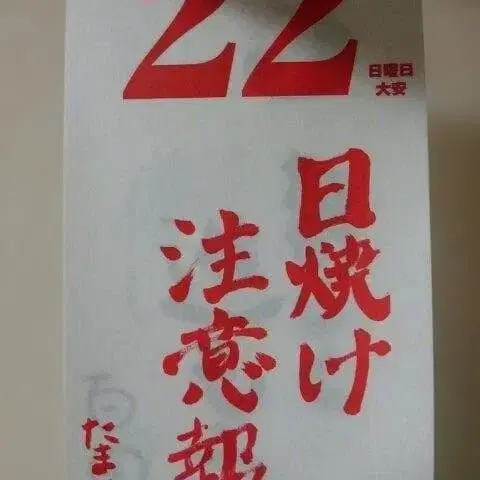 22
日曜日
大安
日焼け
注意報
たま